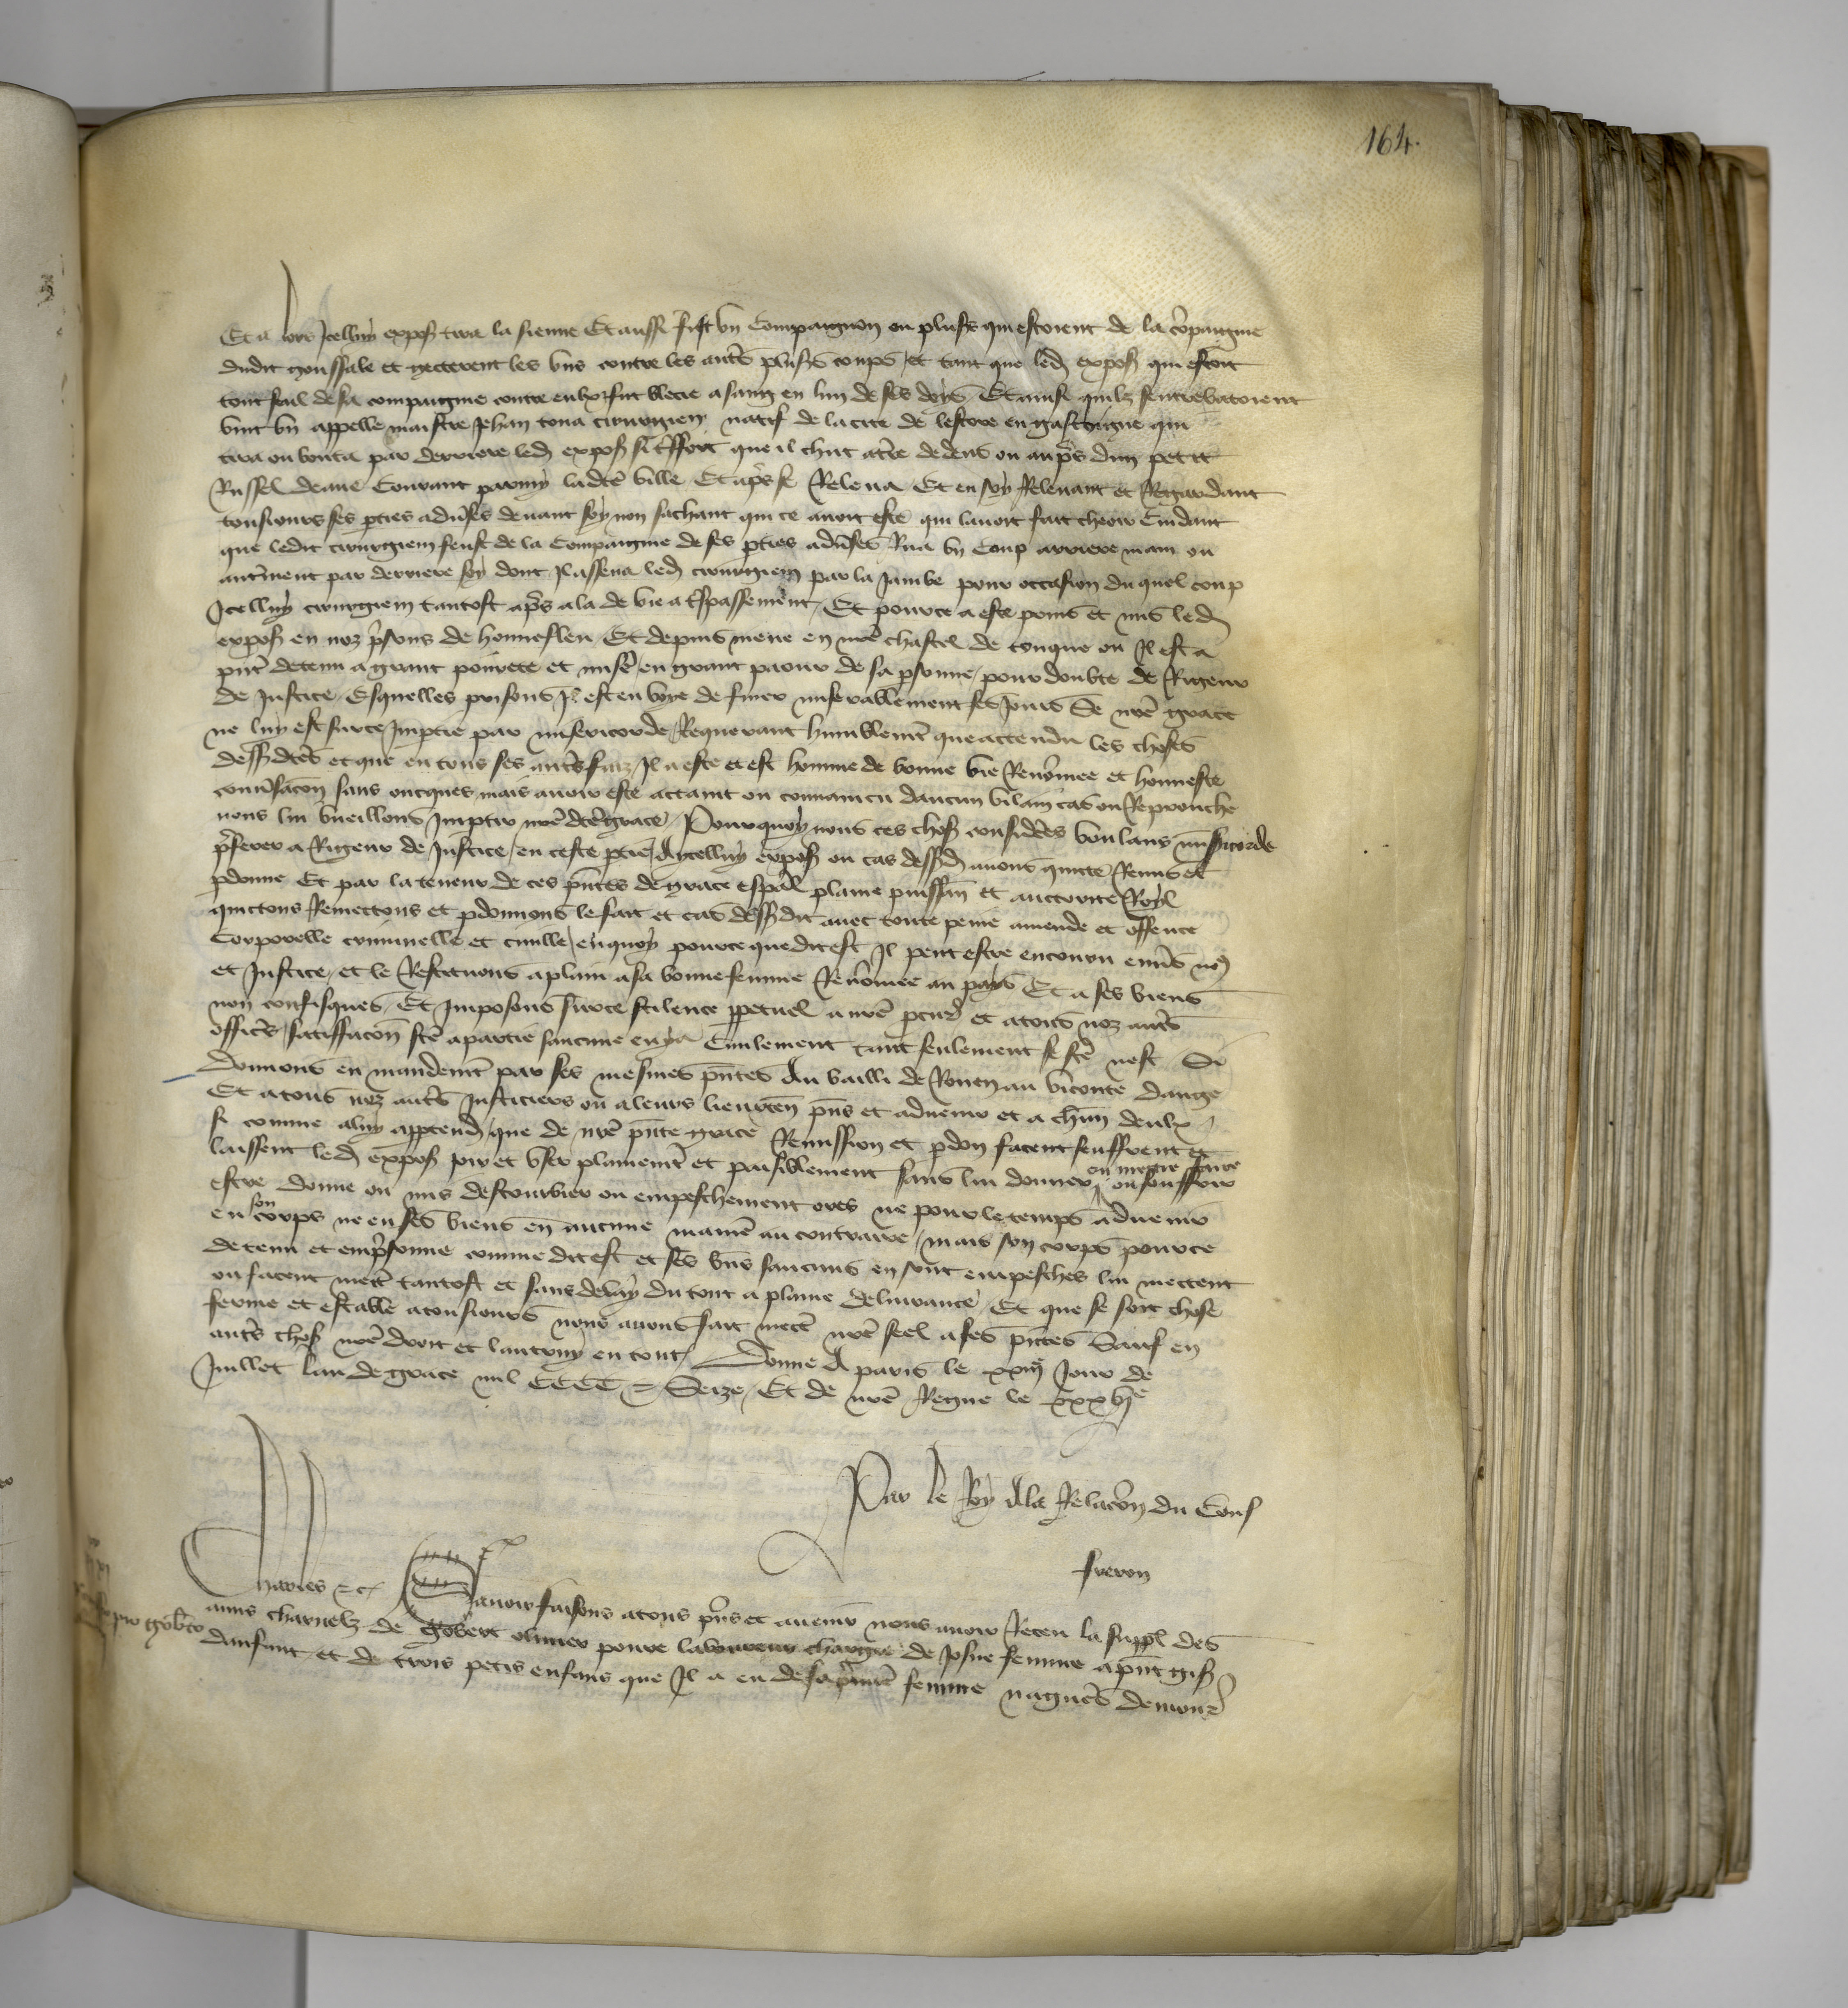 164.
Et alors icelluy expos tira la sienne Et aussi fist un Compaignon ou pluss qui estoient de la cõpaignie
dudit goussale et getterent les uns contre les auts pluss coups / et tant que led expos qui estoit
tout seul de sa compaignie contre eulx fut blecie a sang en lun de ses dois Et ainsi quilz sentrebatoient
vint un appelle maistre Jehan cirurgien natif de la cite de lestore en gascoigne qui
tira ou bouta par derriere led expos si tsfort que il chut a tre dedens ou aups dun petit
Russel deaue Courant parmy ladte ville Et aps se Releva Et en soy Relevant et Regardant
tousiours ses pties advses devant soy non sachant qui ce avoit este qui lavoit fait cheoir Cuidant
que ledit cirurgien feust de la Compaignie de ses pties advses Rua un Coup arriere main ou
autment par derriere soy dont Il assena led cirurgien par la Jambe pour occasion du quel coup
Icelluy cirurgien tantost aps ala de vie a tspassement / Et pource a este prins et mis led
expos en noz psons de honnefleu Et depuis mene en nre chastel de touque ou Il est a
pnt detenu a grant povrete et mise en grant paour de sa psonne / pour doubte de Rigeur
de Justice / Esquelles prisons Il est en voye de finer miserablement ses Jours Se nre grace
ne luy est surce Imptie par misericorde / Requerant humblemt que attendu les choses
dessdtes et que en tous ses auts faiz Il a este et est homme de bonne vie Renommee et honneste
convsacon sans oncques mais avoir este actaint ou convaincu daucun vilain cas ou Reprouche
nous lui vueillons Imptir nre dte grace / Pourquoy nous ces chos considees voulans misicorde
pferer a Rigeur de Justice / en ceste ptie / A ycelluy expos ou cas dessd avons quicte Remis et
pdonne Et par la teneur de ces pntes de grace espal plaine puissan et auctorite Royl
quictons Remectons et pdonnons le fait et cas dessdit avec toute peine amende et offence
Corporelle criminelle et civille / en quoy pource que dit est Il peut estre encouru envs no
et Justice / et le Restituons a plain a sa bonne femme Renommee au pays Et a ses biens
non confisques / Et Imposons surce silence ppetuel a nre pcur et a tous noz auts
offics / satisffacon fte a partie saucune en y a Civilement tant seulement se fte nest Si
Donnons en mandemt par ses mesmes pntes Au bailli de Rouen au viconte dauge
Et a tous noz auts Justiciers ou a leurs lieuxten pns et advenir et a chun deulx /
si comme a luy apptend que de nre pnte grace Remission et pdon facent seuffrent et
laissent led expos joir et user plainemt et paisiblement sans lui donner ou mectre faire ou souffrir
estre donne ou mis destourbier ou empeschement ores ne pour le temps advenir
en son corps ne en ses biens en aucune manie au contraire / mais son corps pource
detenu et empsonne comme dit est et ses bns saucuns en sont empesches lui mectent
ou facent mett tantost et sans delay du tout a plaine delivrance / Et que se soit chose
ferme et estable a tousiours nous avons fait mett nre seel a ses pntes Sauf en
auts chos nre droit et lautruy en tout / Donne A paris le xxiij Jour de
Juillet lan de grace mil CCCC & Seize / Et de nre Regne le xxxvje
Par le Roy A la Relacon du Cons
freron
Charles &c Savoir faisons a tous pns et avenir nous avoir Receu la suppl des
amis charnelz de gobert olivier povre laboureur chargie de Josne femme a pnt gis
danfant et de trois petis enfans que Il a eu de sa pmie femme nagues demour